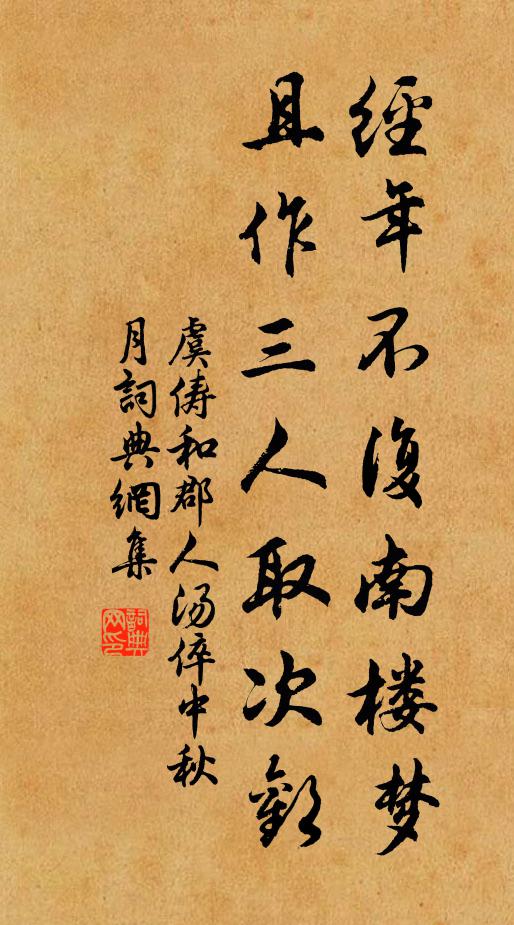 經年不復南楼梦
且作三人取次歡
虞俦和郡人汤倅中秋
月詞典網集
詞典
网印